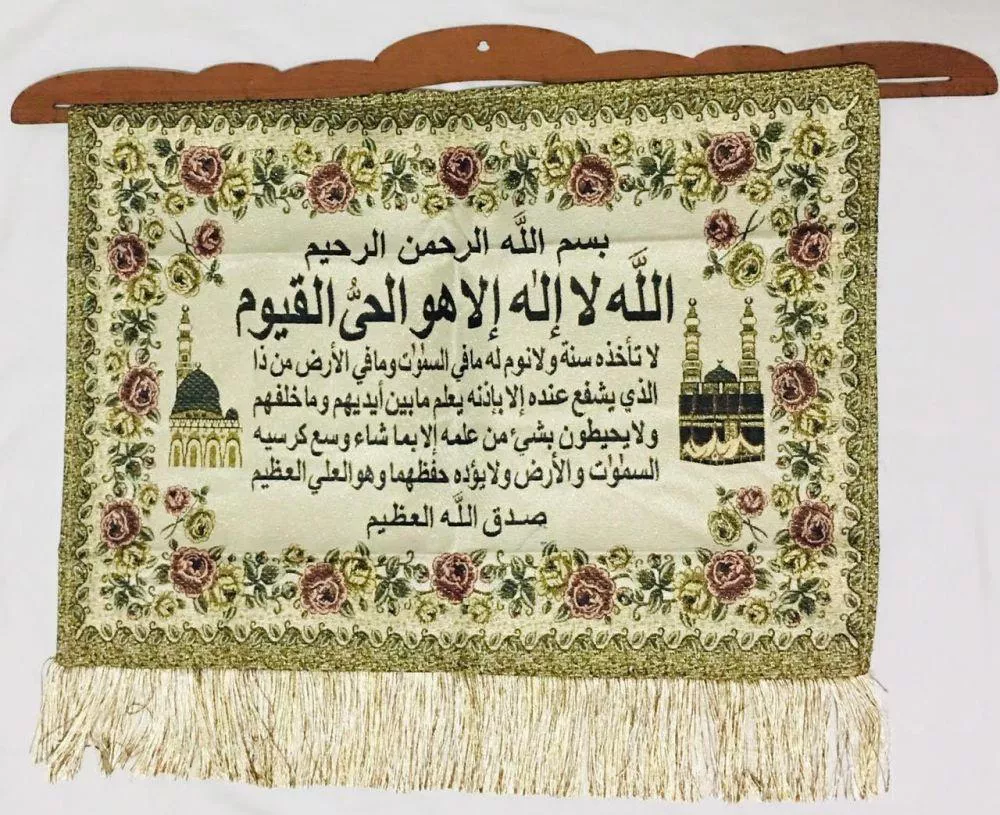 بسم اللّٰه الرحمن الرحيم
اللّٰه لا إلٰه إلا هو الحىُّ القيوم
لا تأخذه سنة ولا نوم له ما في السمٰوٰت وما في الأرض من ذا
الذي يشفع عنده إلا بإذنه يعلم ما بين أيديهم وما خلفهم
ولا يحيطون بشئ من علمه إلا بما شاء وسع كرسيه
السمٰوٰت والأرض ولا يؤده حفظهما وهو العلي العظيم
صدق اللّٰه العظيم